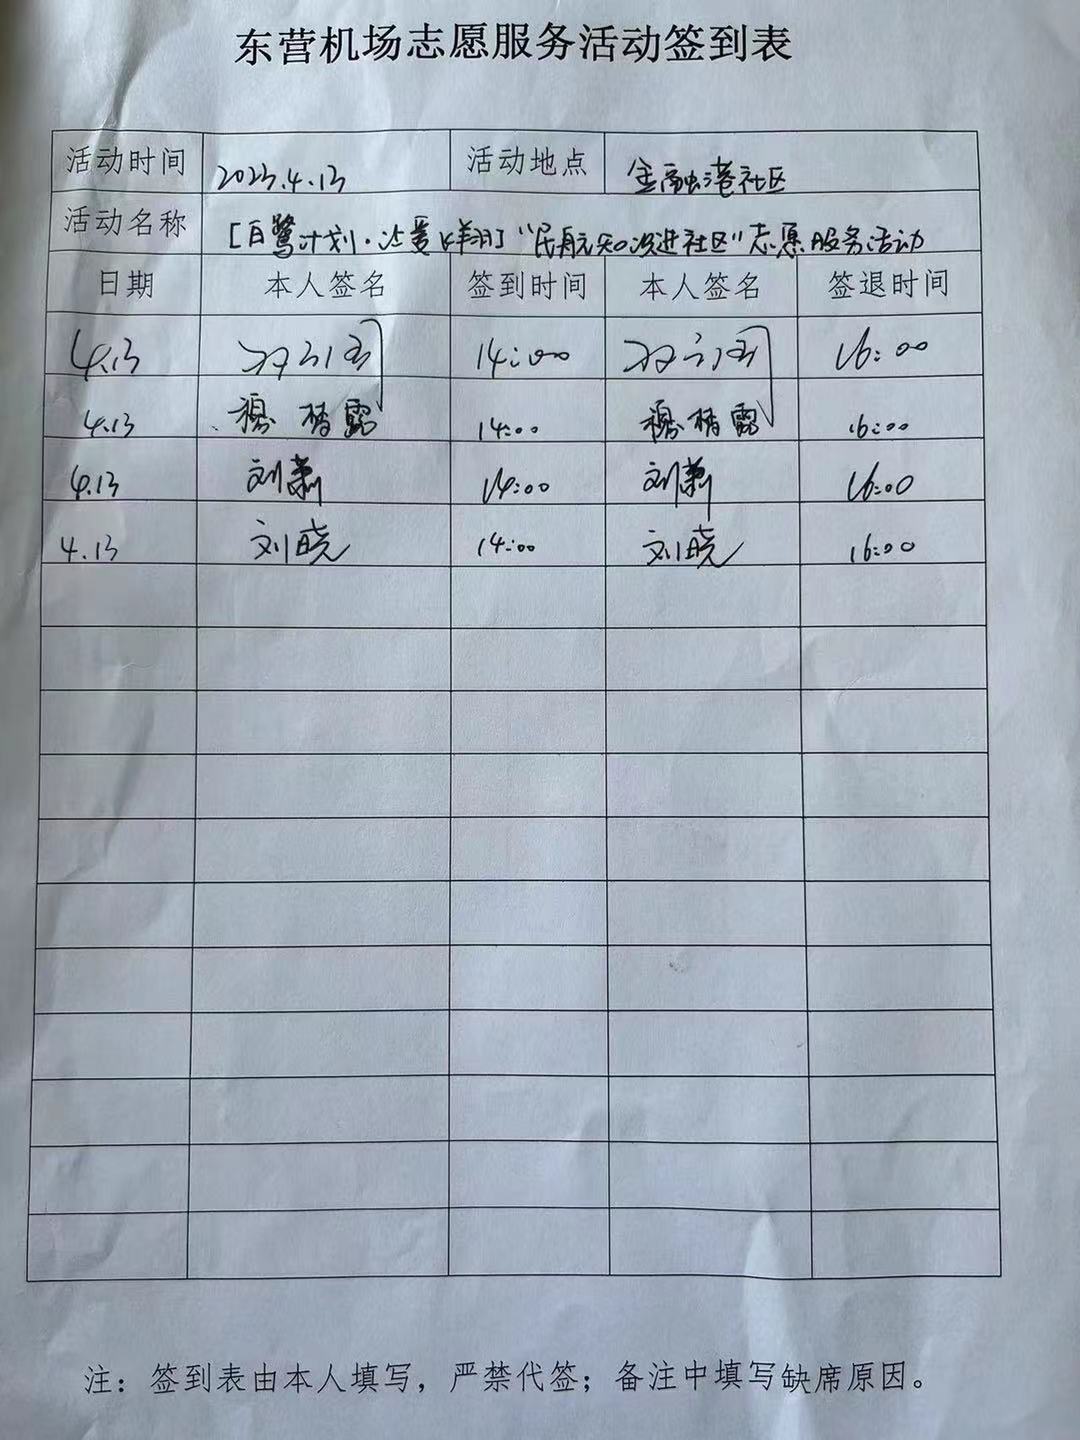 东营机场志愿服务活动签到表
活动时间 2023.4.13 活动地点 金融港社区
活动名称 [白鹭计划·让爱飞翔]"民航知识进社区"志愿服务活动
日期 本人签名 签到时间 本人签名 签退时间
4.13 14:00 16:00
4.13 穆楠露 14:00 穆楠露 16:00
4.13 刘萧 14:00 刘萧 16:00
4.13 刘晓 14:00 刘晓 16:00
注：签到表由本人填写，严禁代签；备注中填写缺席原因。